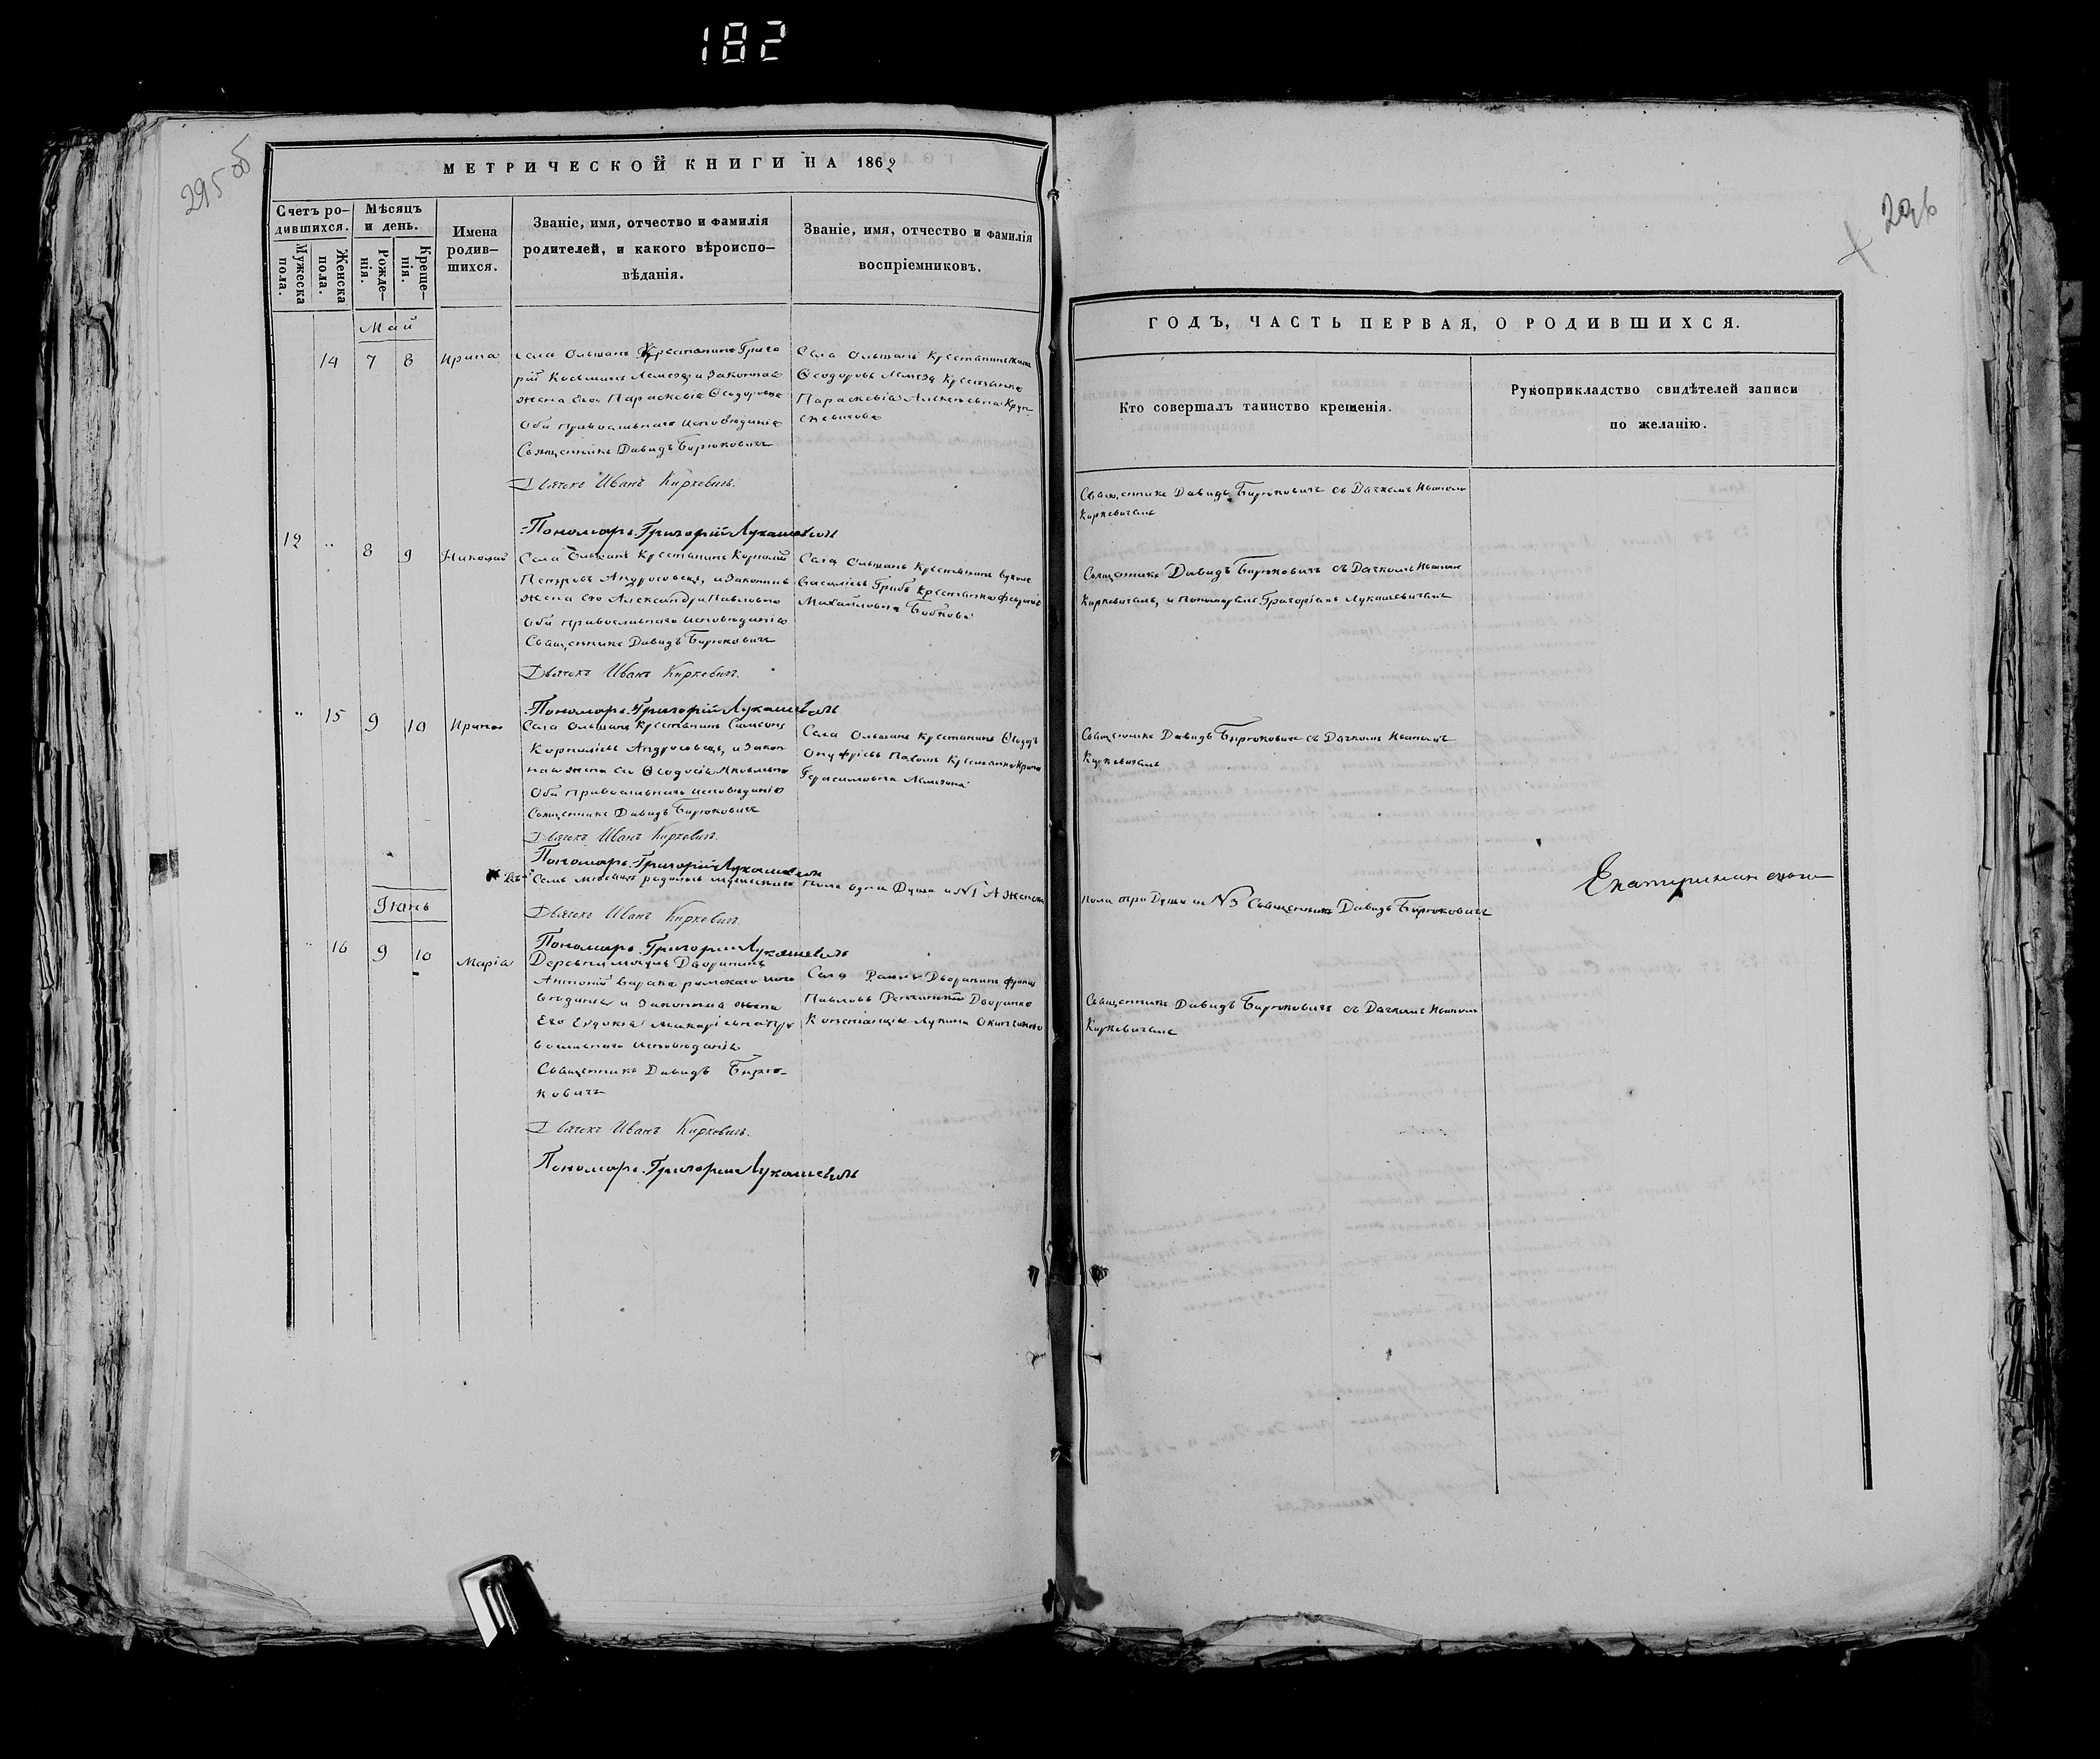 182
295 об
МЕТРИЧЕСКОЙ КНИГИ НА 1862
Счетъ ро-
дившихся.
Мужеска
пола.
Женска
пола.
Мѣсяцъ
и день.
Рожде-
нія.
Креще-
нія.
Имена
родив-
шихся.
Званіе, имя, отчество и фамилія
родителей, и какого вѣроиспо-
вѣданія.
Званіе, имя, отчество и фамилія
воспріемниковъ.
Май
14 7 8 Ирина
Села Ольшанъ Крестьянинъ Григо
рій Косьминъ Лемеза и Законная
жена Его Параскевіа Ѳеодоровна
Оба православнаго исповѣданія
Священникъ Давидъ Бирюковичъ
Дьячекъ Иванъ Киркевичъ.
Пономарь Григорій Лукашевичъ
Села Ольшанъ Крестьянинъ
Ѳеодоровъ Лемеза Крестьянка
Параскевіа Алексѣевна Круп
скевичова
12 8 9 Николай
Села Ольшанъ Крестьянинъ Корнилій
Петровъ Андросовецъ, и Законная
жена его Александра Павловна
Оба православнаго исповѣданія
Священникъ Давидъ Бирюковичъ
Дьячекъ Иванъ Киркевичъ.
Пономарь Григорій Лукашевичъ
Села Ольшанъ Крестьянинъ
Василіевъ Грибъ Крестьянка
Михайловна Бобкова
15 9 10 Ирина
Села Ольшанъ Крестьянинъ Симеонъ
Корниліевъ Андросовецъ, и Закон
ная жена его Ѳеодосіа Яковлевна
Оба православнаго исповѣданія
Священникъ Давидъ Бирюковичъ
Дьячекъ Иванъ Киркевичъ.
Пономарь Григорій Лукашевичъ
Села Ольшанъ Крестьянинъ Ѳеодоръ
Онуфріевъ Пахомъ Крестьянка Ирина
Герасимовна Лемезина
Въ Семъ мѣсяцѣ родилось мужескаго пола одна Душа и № 1 А женска
Дьячекъ Иванъ Киркевичъ.
Пономарь Григорій Лукашевичъ
Іюнь
16 9 10 Маріа
Деревни Дворянинъ
Антоній римскаго испо
вѣданія и Законная жена
Его Евдокіа Макаріевна пра
вославнаго исповѣданія
Священникъ Давидъ Бирю-
ковичъ
Дьячекъ Иванъ Киркевичъ.
Пономарь Григорій Лукашевичъ
Села Дворянинъ Францъ
Павловъ Дворянка
Констанція Лукина
296
ГОДЪ, ЧАСТЬ ПЕРВАЯ, О РОДИВШИХСЯ.
Кто совершалъ таинство крещенія.
Рукоприкладство свидѣтелей записи
по желанію.
Священникъ Давидъ Бирюковичъ съ Дячкомъ Иваномъ
Киркевичемъ
Священникъ Давидъ Бирюковичъ съ Дячкомъ Иваномъ
Киркевичемъ, и Пономаремъ Григоріемъ Лукашевичемъ
Священникъ Давидъ Бирюковичъ съ Дячкомъ Иваномъ
Киркевичемъ
пола три Души и № 3 Священникъ Давидъ Бирюковичъ
Священникъ Давидъ Бирюковичъ съ Дячкомъ Иваномъ
Киркевичемъ